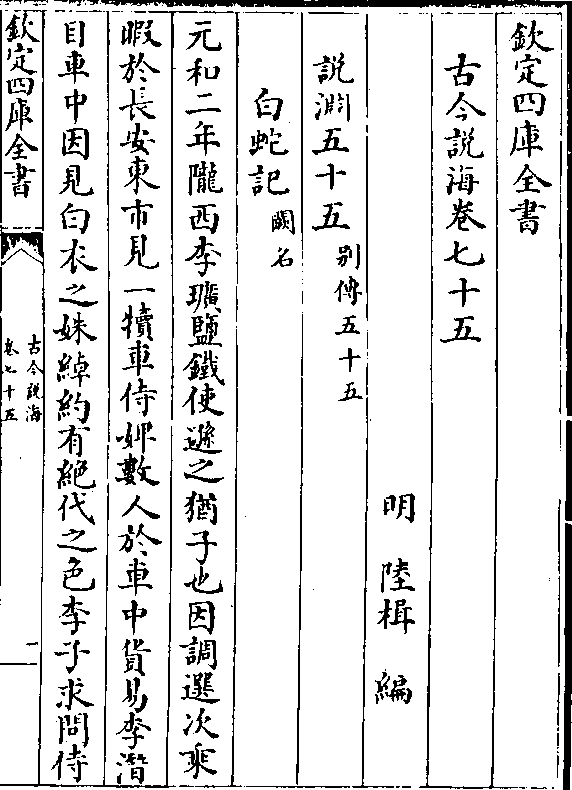 欽定四庫全書
古今説海卷七十五
明 陸楫 編
説淵五十五 别傳五十五
白蛇記 闕名
元和二年隴西李瓚鹽鐵使遜之猶子也因調選次乘
暇於長安東市見一犢車侍婢數人於車中貨易李潛
目車中因見白衣之姝綽約有絶代之色李子求問侍
欽定四庫全書
古今説海
卷七十五
一